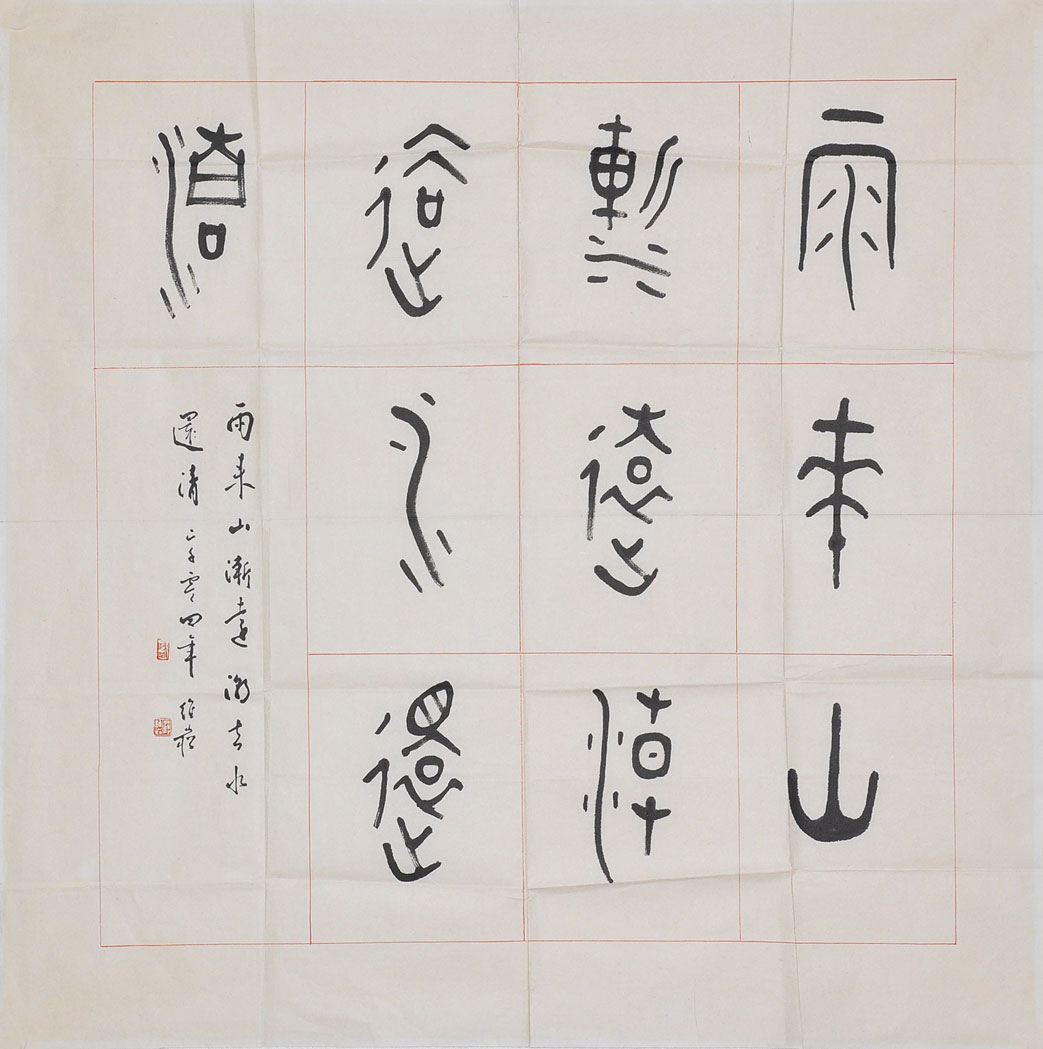 雨來山
漸遠潮
去水還
清
雨来山漸遠潮去水
還清 二千零四年